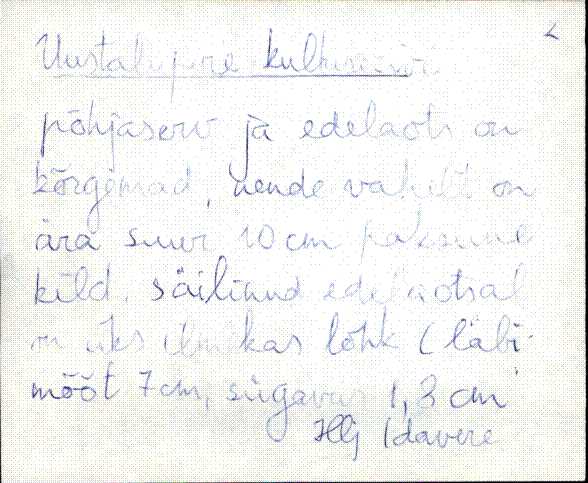 2
Uustalupere kultusekivi
põhjaserv ja edelaots on
kõrgemad, nende vahelt on
ära suur 10 cm paksune
kild. Säilinud edelaotsal
on üks ilmekas lohk (läbi-
mõõt 7 cm, sügavus 1,3 cm
Hlj Idavere